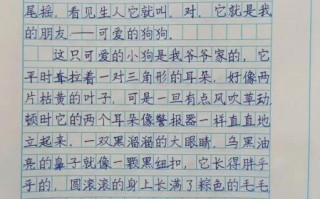 尾摇,看见生人它就叫。对,它就是我
的朋友——可爱的狗狗。
这只可爱的小狗是我爷爷家的,它
平时耷拉着一对三角形的耳朵,好像两
片枯黄的叶子,可是一旦有点风吹草动
顿时它的两个耳朵像警报器一样直直地
立起来,一双黑溜溜的大眼睛,乌黑油
亮的鼻子就像一颗黑纽扣,它长得胖乎
乎的,圆滚滚的身上长满了棕色的毛毛